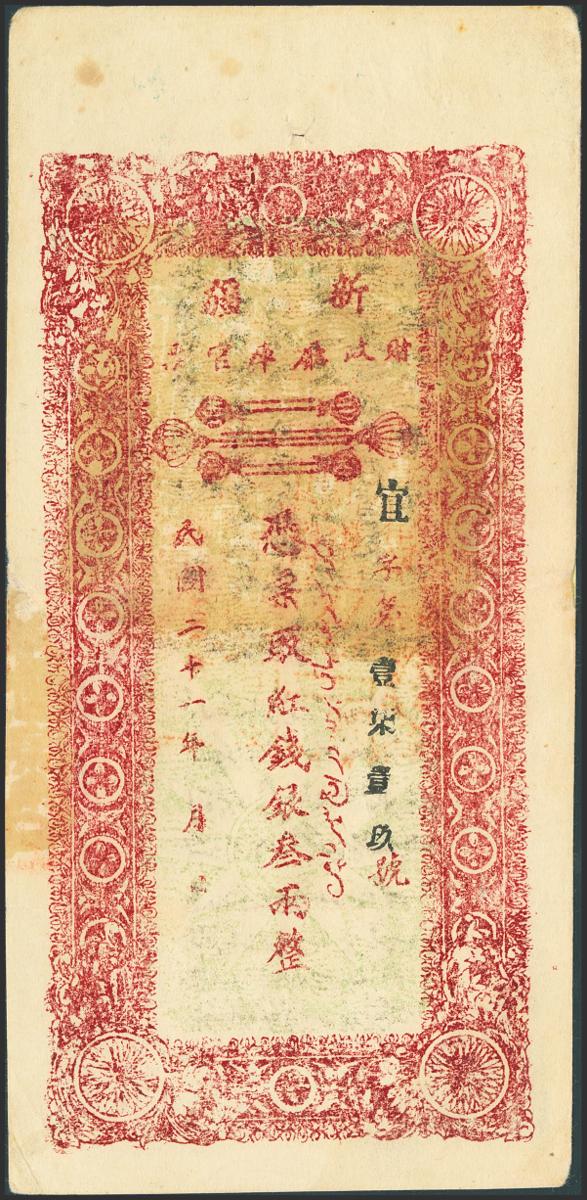 新疆
財政廳庫官票
宜字第壹柒壹玖號
憑票取紅錢銀叁兩整
民國二十一年 月 日